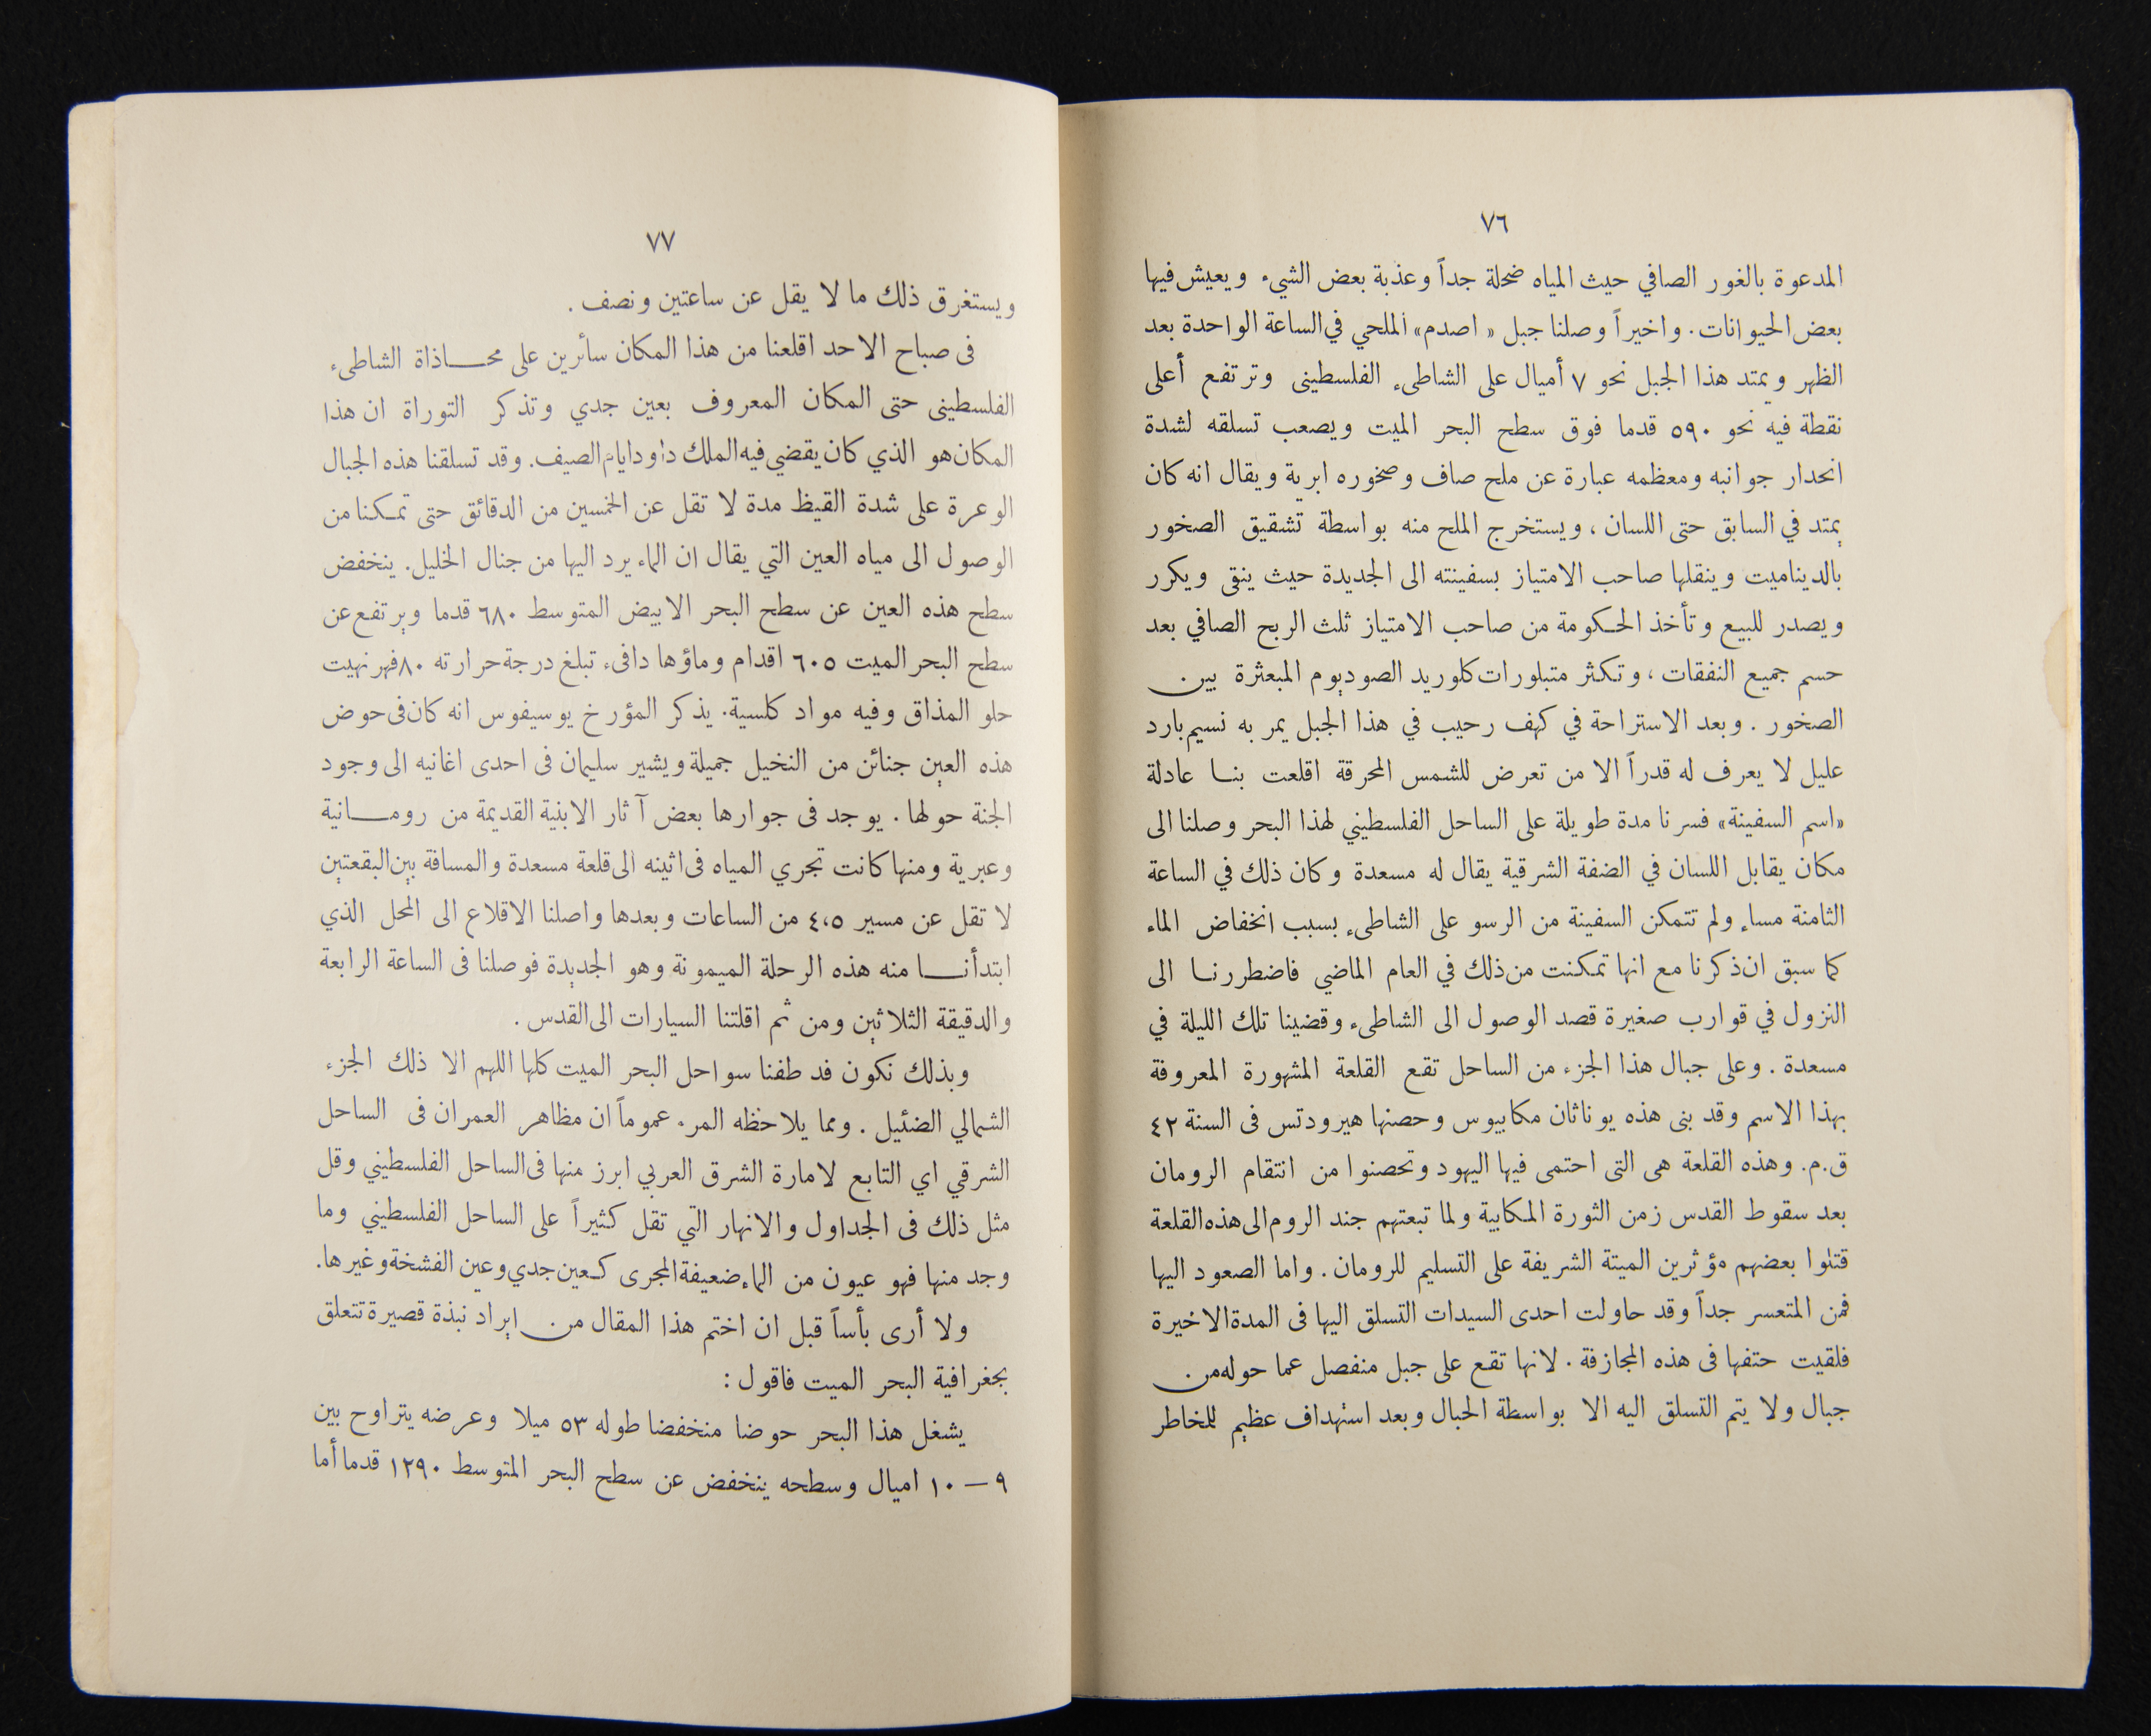 ٧٦
المدعوة بالغور الصافي حيث المياه ضحلة جداً وعذبة بعض الشيء ويعيش فيها
بعض الحيوانات. واخيراً وصلنا جبل « اصدم» الملحي في الساعة الواحدة بعد
الظهر ويمتد هذا الجبل نحو ٧ أميال على الشاطىء الفلسطينى وترتفع أعلى
نقطة فيه نحو ٥٩٠ قدما فوق سطح البحر الميت ويصعب تسلقه لشدة
انحدار جوانبه ومعظمه عبارة عن ملح صاف وصخوره ابرية ويقال انه كان
يمتد في السابق حتى اللسان ، ويستخرج الملح منه بواسطة تشقيق الصخور
بالديناميت وينقلها صاحب الامتياز بسفينته الى الجديدة حيث ينقى ويكرر
ويصدر للبيع وتأخذ الحكومة من صاحب الامتياز ثلث الربح الصافي بعد
حسم جميع النفقات ، وتكثر متبلورات كلوريد الصوديوم المبعثرة بين
الصخور . وبعد الاستراحة في كهف رحيب في هذا الجبل يمر به نسيم بارد
عليل لا يعرف له قدراً الا من تعرض للشمس المحرقة اقلعت بنا عادلة
«اسم السفينة» فسرنا مدة طويلة على الساحل الفلسطيني لهذا البحر وصلنا الى
مكان يقابل اللسان في الضفة الشرقية يقال له مسعدة وكان ذلك في الساعة
الثامنة مساء ولم تتمكن السفينة من الرسو على الشاطىء بسبب انخفاض الماء
كما سبق ان ذكرنا مع انها تمكنت من ذلك في العام الماضي فاضطررنا الى
النزول في قوارب صغيرة قصد الوصول الى الشاطىء وقضينا تلك الليلة في
مسعدة . وعلى جبال هذا الجزء من الساحل تقع القلعة المشهورة المعروفة
بهذا الاسم وقد بنى هذه يوناثان مكابيوس وحصنها هيرودتس فى السنة ٤٢
ق.م. وهذه القلعة هى التى احتمى فيها اليهود وتحصنوا من انتقام الرومان
بعد سقوط القدس زمن الثورة المكابية ولما تبعتهم جند الروم الى هذه القلعة
قتلوا بعضهم مؤثرين الميتة الشريفة على التسليم للرومان. واما الصعود اليها
فمن المتعسر جداً وقد حاولت احدى السيدات التسلق اليها فى المدة الاخيرة
فلقيت حتفها فى هذه المجازفة . لانها تقع على جبل منفصل عما حوله من
جبال ولا يتم التسلق اليه الا بواسطة الحبال وبعد استهداف عظيم للمخاطر
٧٧
ويستغرق ذلك ما لا يقل عن ساعتين ونصف .
فى صباح الاحد اقلعنا من هذا المكان سائرين على محاذاة الشاطىء
الفلسطينى حتى المكان المعروف بعين جدي وتذكر التوراة ان هذا
المكان هو الذي كان يقضي فيه الملك داود ايام الصيف. وقد تسلقنا هذه الجبال
الوعرة على شدة القيظ مدة لا تقل عن الخمسين من الدقائق حتى تمكنا من
الوصول الى مياه العين التي يقال ان الماء يرد اليها من جنال الخليل. ينخفض
سطح هذه العين عن سطح البحر الابيض المتوسط ٦٨٠ قدما ويرتفع عن
سطح البحر الميت ٦٠٥ اقدام وماؤها دافىء تبلغ درجة حرارته ٨٠ فهرنهيت
حلو المذاق وفيه مواد كلسية. يذكر المؤرخ يوسيفوس انه كان فى حوض
هذه العين جنائن من النخيل جميلة ويشير سليمان فى احدى اغانيه الى وجود
الجنة حولها . يوجد فى جوارها بعض آثار الابنية القديمة من رومانية
وعبرية ومنها كانت تجري المياه فى اثينه الى قلعة مسعدة والمسافة بين البقعتين
لا تقل عن مسير ٤،٥ من الساعات وبعدها واصلنا الاقلاع الى المحل الذي
ابتدأنا منه هذه الرحلة الميمونة وهو الجديدة فوصلنا فى الساعة الرابعة
والدقيقة الثلاثين ومن ثم اقلتنا السيارات الى القدس .
وبذلك نكون قد طفنا سواحل البحر الميت كلها اللهم الا ذلك الجزء
الشمالي الضئيل . ومما يلاحظه المرء عموماً ان مظاهر العمران فى الساحل
الشرقي اي التابع لامارة الشرق العربي ابرز منها فى الساحل الفلسطيني وقل
مثل ذلك فى الجداول والانهار التي تقل كثيراً على الساحل الفلسطيني وما
وجد منها فهو عيون من الماء ضعيفة المجرى كعين جدي وعين الفشخة وغيرها.
ولا أرى بأساً قبل ان اختم هذا المقال من ايراد نبذة قصيرة تتعلق
بجغرافية البحر الميت فاقول :
يشغل هذا البحر حوضا منخفضا طوله ٥٣ ميلا وعرضه يتراوح بين
٩ – ١٠ اميال وسطحه ينخفض عن سطح البحر المتوسط ١٢٩٠ قدما أما